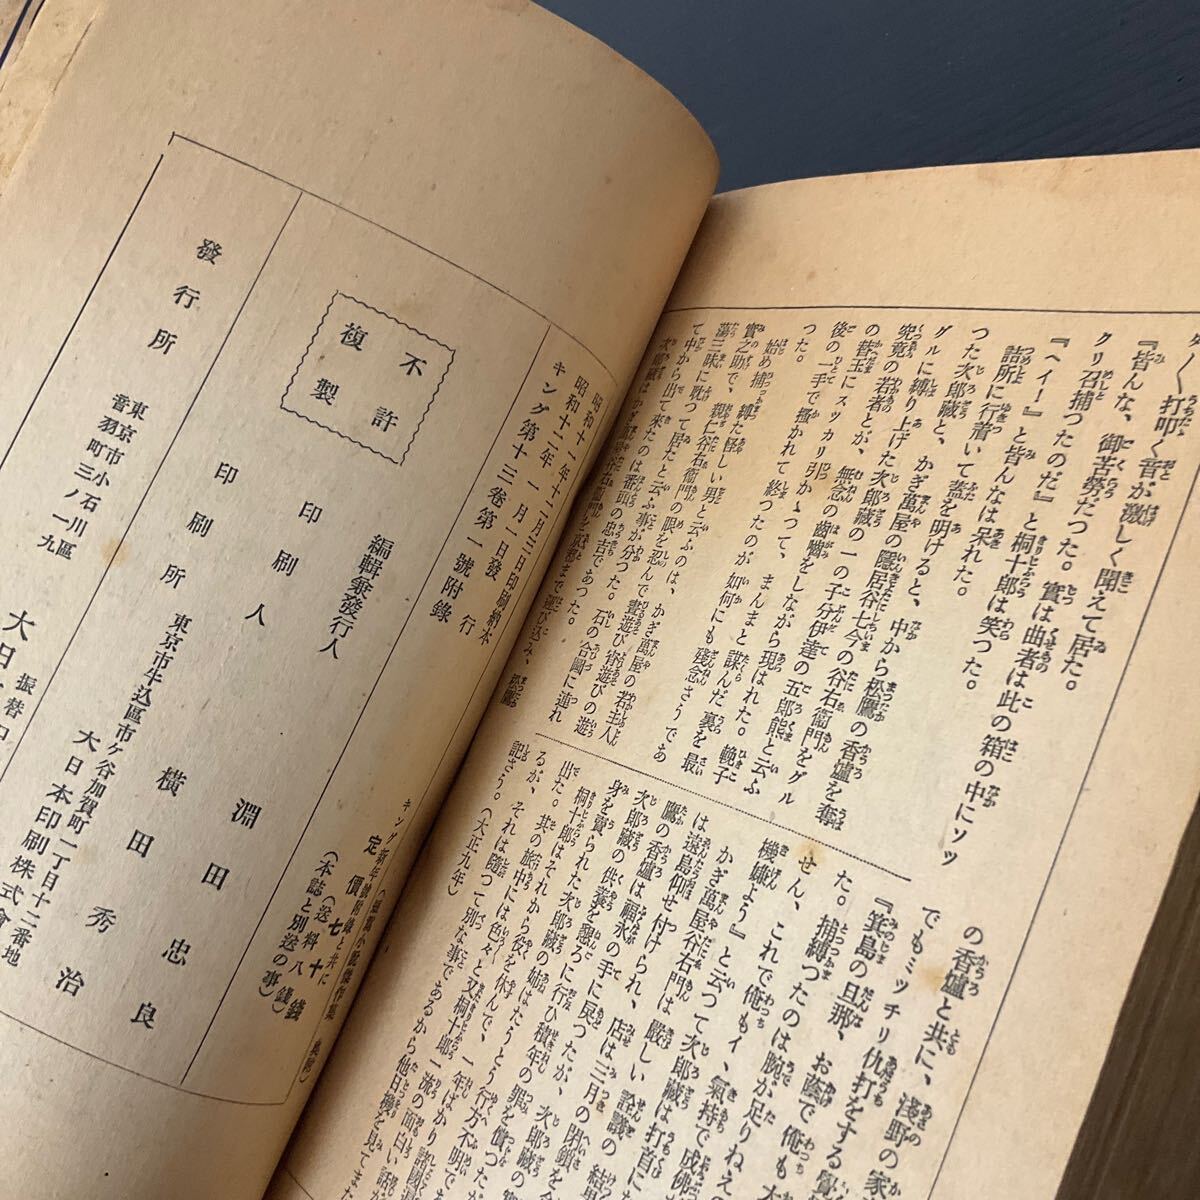 打叩く音が激しく聞えて居た。
『皆んな、御苦勞だつた。實は曲者は此の箱の中にソッ
クリ召捕つたのだ』と桐十郎は笑つた。
『ヘイー』と皆んなは呆れた。
詰所に行着いて蓋を明けると、中から松鷹の香爐を奪
つた次郎藏と、かぎ萬屋の隱居谷七今の谷右衞門をグル
グルに縛り上げた次郎藏の一の子分伊達の五郎熊と云ふ
究竟の若者とが、無念の齒嚙をしながら現はれた。
の替玉にスッカリ引かゝつて、まんまと謀んだ裏を最
後の一手で搔かれて終つたのが如何にも殘念さうであ
つた。
始め捕つ縛た怪しい男と云ふのは、かぎ萬屋の若主人
實之助で、親仁谷右衞門の眼を忍んで晝遊び宵遊びの遊
蕩三昧に耽つて居たと云ふ事が分つた。石の合圖に連れ
て中から出て來たのは番頭の忠吉であつた。
の香爐と共に、淺野の家
でもミッチリ仇打をする覺
た。
『箕島の旦那、お蔭で俺も大
せん、これで俺もイ、氣持で成佛
機嫌よう』と云つて次郎藏は打首に
かぎ萬屋谷右衞門は嚴しい詮議の結果
は遠島仰せ付けられ、店は三月の閉鎖を
鷹の香爐は福永の手に戻つたが、次郎藏の
次郎藏の供養を懇ろに行ひ積年の罪を償つたが
身を賣られた次郎藏の姉はたうとう行方不明で
桐十郎はそれから役を休んで、一年ばかり諸國
出た。其の旅中には色々と又桐十郎一流の面白い話が
るが、それは隨つて別な事であるから他日機を見てまた
記さう。(大正九年)
昭和十一年十二月三日印刷納本
昭和十二年一月一日發行
キング第十三卷第一號附錄
不許
複製
編輯兼發行人 淵田忠良
印刷人 橫田秀治
印刷所 東京市牛込區市ケ谷加賀町一丁目十二番地
大日本印刷株式會
發行所 東京市小石川區
音羽町三ノ一九
大日
振替
定價七十錢
(送料八錢)
(本誌と別送の事)